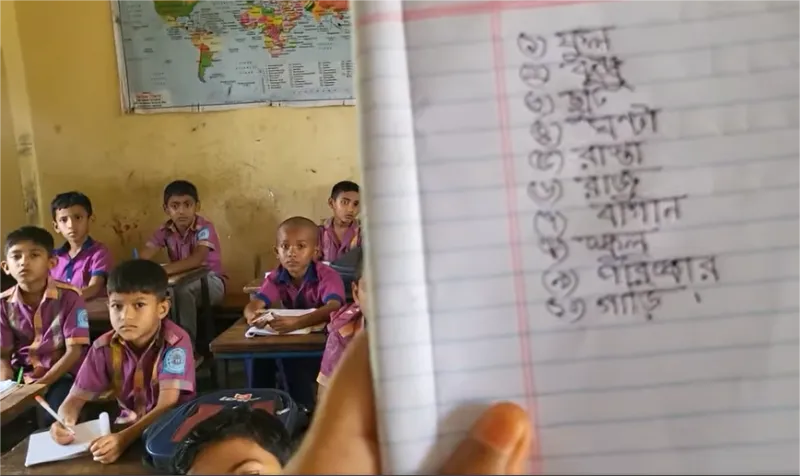 ১) ফুল
২) বন্ধু
৩) ছুটি
৪) ঘণ্টা
৫) রাস্তা
৬) রাজু
৭) বাগান
৮) স্কুল
৯) পরিষ্কার
১০) গাড়ি